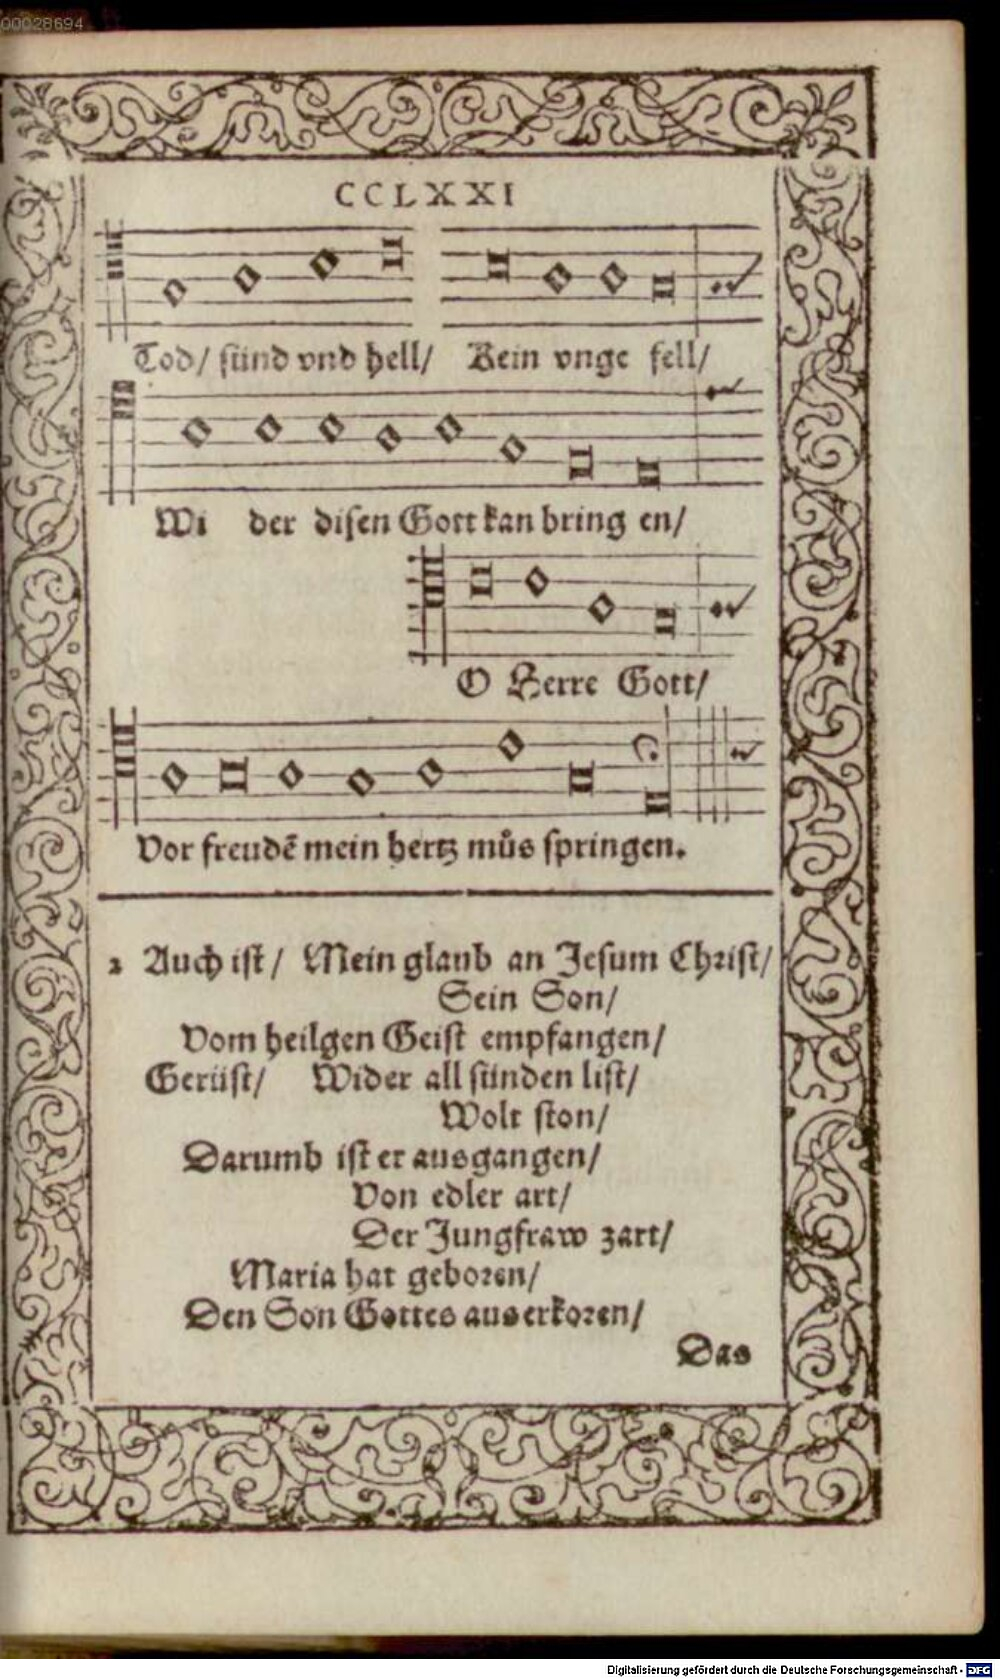 00028694
CCLXXI
Tod/ sünd vnd hell/ Kein vnge fell/
Wi der disen Gott kan bring en/
O Herre Gott/
Vor freudẽ mein hertz můs springen.
2 Auch ist/ Mein glaub an Jesum Christ/
Sein Son/
Vom heilgen Geist empfangen/
Gerüst/ Wider all sünden list/
Wolt ston/
Darumb ist er ausgangen/
Von edler art/
Der Jungfraw zart/
Maria hat geboren/
Den Son Gottes auserkoren/
Das
Digitalisierung gefördert durch die Deutsche Forschungsgemeinschaft - DFG